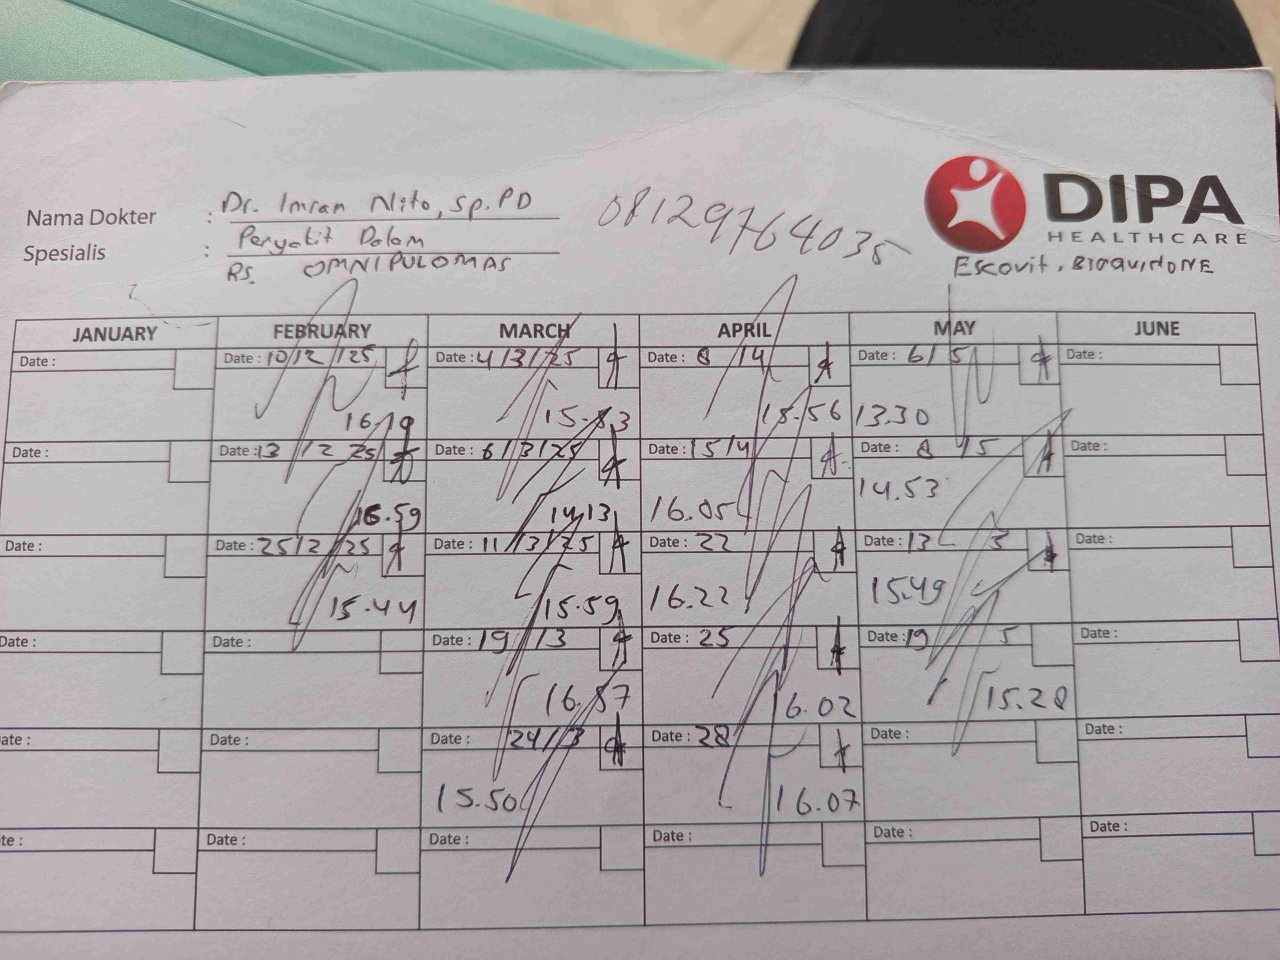 Nama Dokter : Dr. Imran Nito, Sp.PD 08129764035
Spesialis : Penyakit Dalam
RS. OMNI PULOMAS
DIPA
HEALTHCARE
Escovit, BIOQUINONE
JANUARY FEBRUARY MARCH APRIL MAY JUNE
Date : Date : 10/2/25 Date : 4/3/25 Date : 8/4 Date : 6/5 Date :
16.19 15.53 15.56 13.30
Date : Date : 13/2 25 Date : 6/3/25 Date : 15/4 Date : 8/5 Date :
16.59 14.13 16.05 14.53
Date : Date : 25/2/25 Date : 11/3/25 Date : 22 Date : 13 5 Date :
15.44 15.59 16.22 15.49
Date : Date : Date : 19/3 Date : 25 Date : 19 5 Date :
16.57 16.02 15.28
ate : Date : Date : 24/3 Date : 28 Date : Date :
15.50 16.07
te : Date : Date : Date : Date : Date :